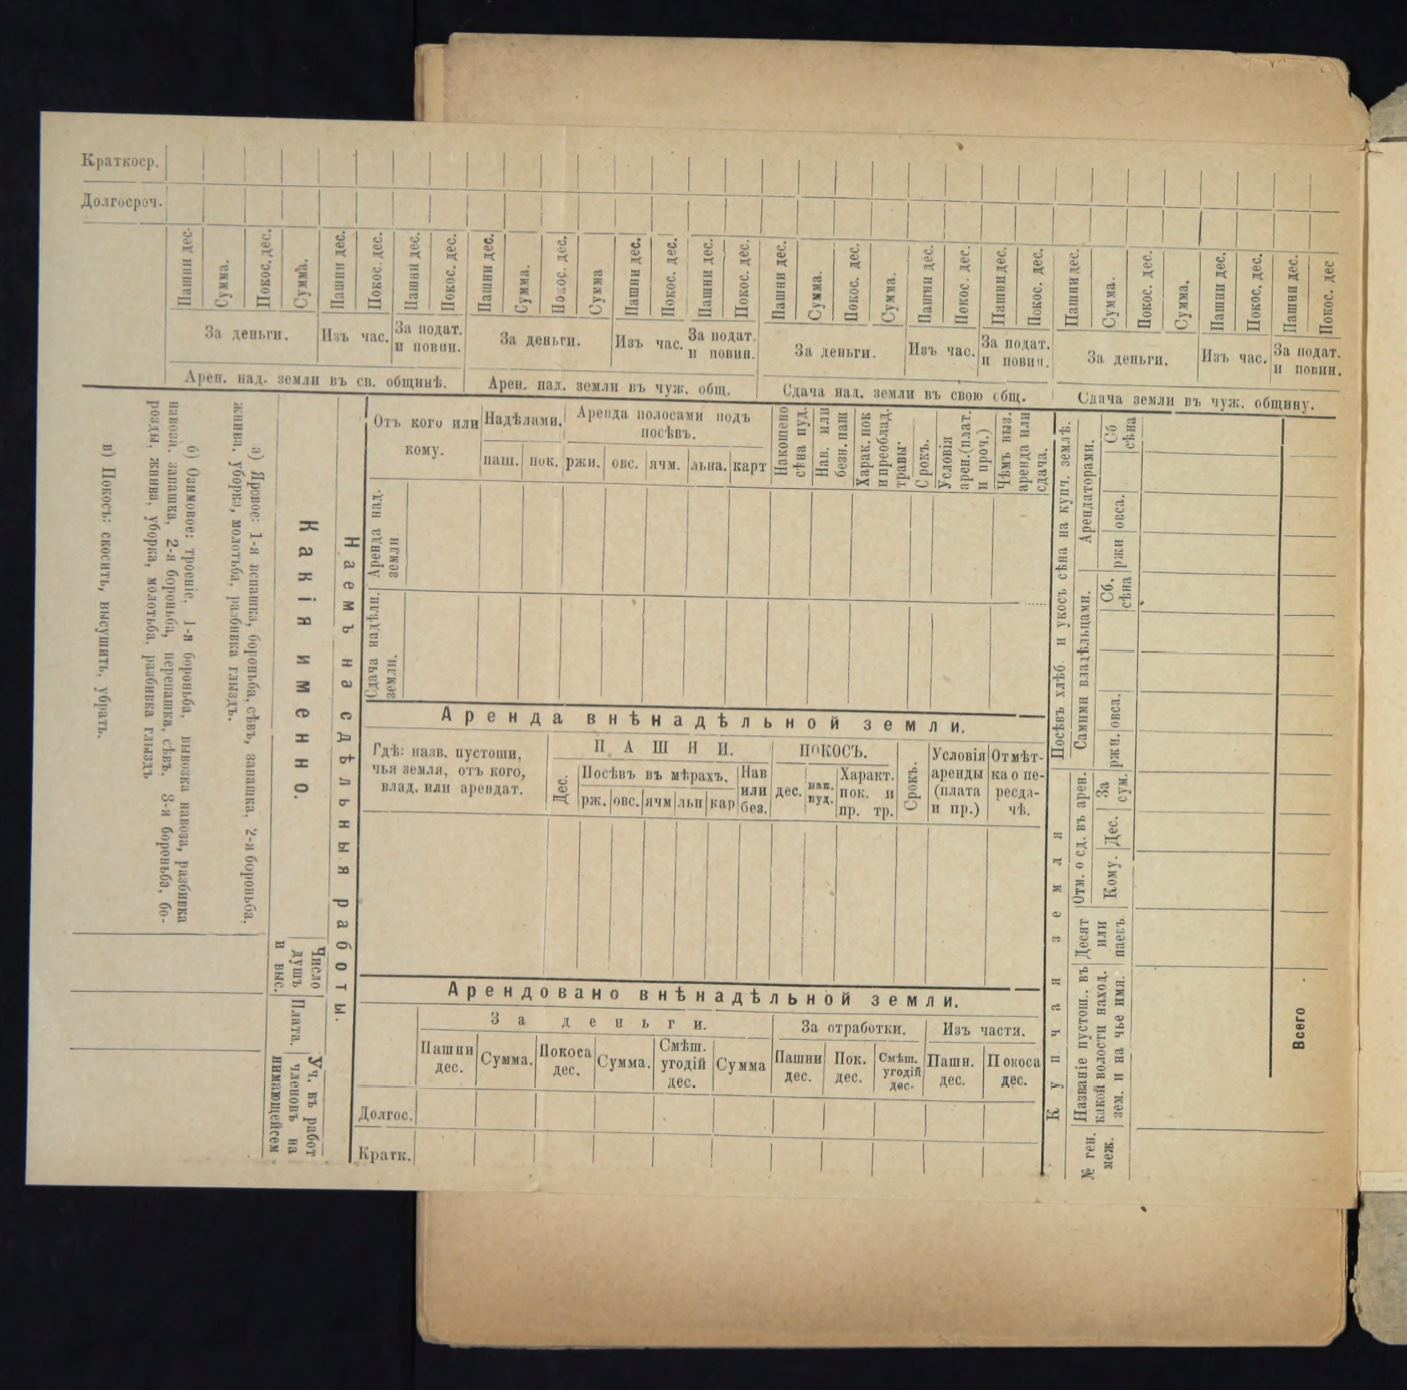 Краткоср.
Долгосроч.
Пашни дес.
Сумма.
Покос. дес.
Сумма.
Пашни дес.
Покос. дес.
Пашни дес.
Покос. дес.
Пашни дес.
Сумма.
Покос. дес.
Сумма
Пашни дес.
Покос. дес.
Пашни дес.
Покос. дес.
Пашни дес.
Сумма.
Покос. дес.
Сумма.
Пашни дес.
Покос. дес.
Пашни дес.
Покос. дес.
Пашни дес.
Сумма.
Покос. дес.
Сумма.
Пашни дес.
Покос. дес.
Пашни дес.
Покос. дес
За деньги.
Изъ час.
За подат.
и повин.
За деньги.
Изъ час.
За подат.
и повин.
За деньги.
Изъ час.
За подат.
и повин.
За деньги.
Изъ час.
За подат.
и повин.
Арен. над. земли въ св. общинѣ.
Арен. над. земли въ чуж. общ.
Сдача над. земли въ свою общ.
Сдача земли въ чуж. общину.
Отъ кого или
кому.
Надѣлами.
паш.
пок.
Аренда полосами подъ
посѣвъ.
ржи.
овс.
ячм.
льна.
карт
Накошено
сѣна пуд.
Нав. или
безн. паш
Харак. пок
и преоблад.
травы.
Срокъ.
Условія
арен.(плат.
и проч.)
Чѣмъ выз.
аренда или
сдача.
Аренда над.
земли.
Сдача надѣли.
земли.
Аренда внѣнадѣльной земли.
Гдѣ: назв. пустоши,
чья земля, отъ кого,
влад. или арендат.
Дес.
ПАШНИ.
Посѣвъ въ мѣрахъ.
рж.
овс.
ячм
льн
кар
Нав
или
без.
ПОКОСЪ.
дес.
нак.
пуд.
Характ.
пок. и
пр. тр.
Срокъ.
Условія
аренды
(плата
и пр.)
Отмѣт-
ка о пе-
ресда-
чѣ.
Арендовано внѣнадѣльной земли.
За деньги.
Пашни
дес.
Сумма.
Покоса
дес.
Сумма.
Смѣш.
угодій
дес.
Сумма
За отработки.
Пашни
дес.
Пок.
дес.
Смѣш.
угодій
дес.
Изъ части.
Пашн.
дес.
Покоса
дес.
Долгос.
Кратк.
Купчая земля
Посѣвъ хлѣб. и укосъ сѣна на купч. землѣ.
Арендаторами.
Сб
сѣна
овса.
ржи
Самими владѣльцами.
Сб.
сѣна
овса.
ржи.
Отм. о сд. въ арен.
За
сум.
Дес.
Кому.
Десят
или
паевъ.
Названіе пустош., въ
какой волости наход.
зем. и на чье имя.
№ ген.
меж.
Всего
Наемъ на сдѣльныя работы.
Какія именно.
Число
душъ
и выс.
Плата.
Уч. въ работ
членовъ на
нимающейсем
а) Яровое: 1-я вспашка, бороньба, сѣвъ, запашка, 2-я бороньба,
жнива, уборка, молотьба, разбивка глыздъ.
б) Озимовое: троеніе, 1-я бороньба, вывозка навоза, разбивка
навоза, запашка, 2-я бороньба, перепашка, сѣвъ, 3-я бороньба, бо-
розды, жнива, уборка, молотьба, разбивка глыздъ
в) Покосъ: скосить, высушить, убрать.